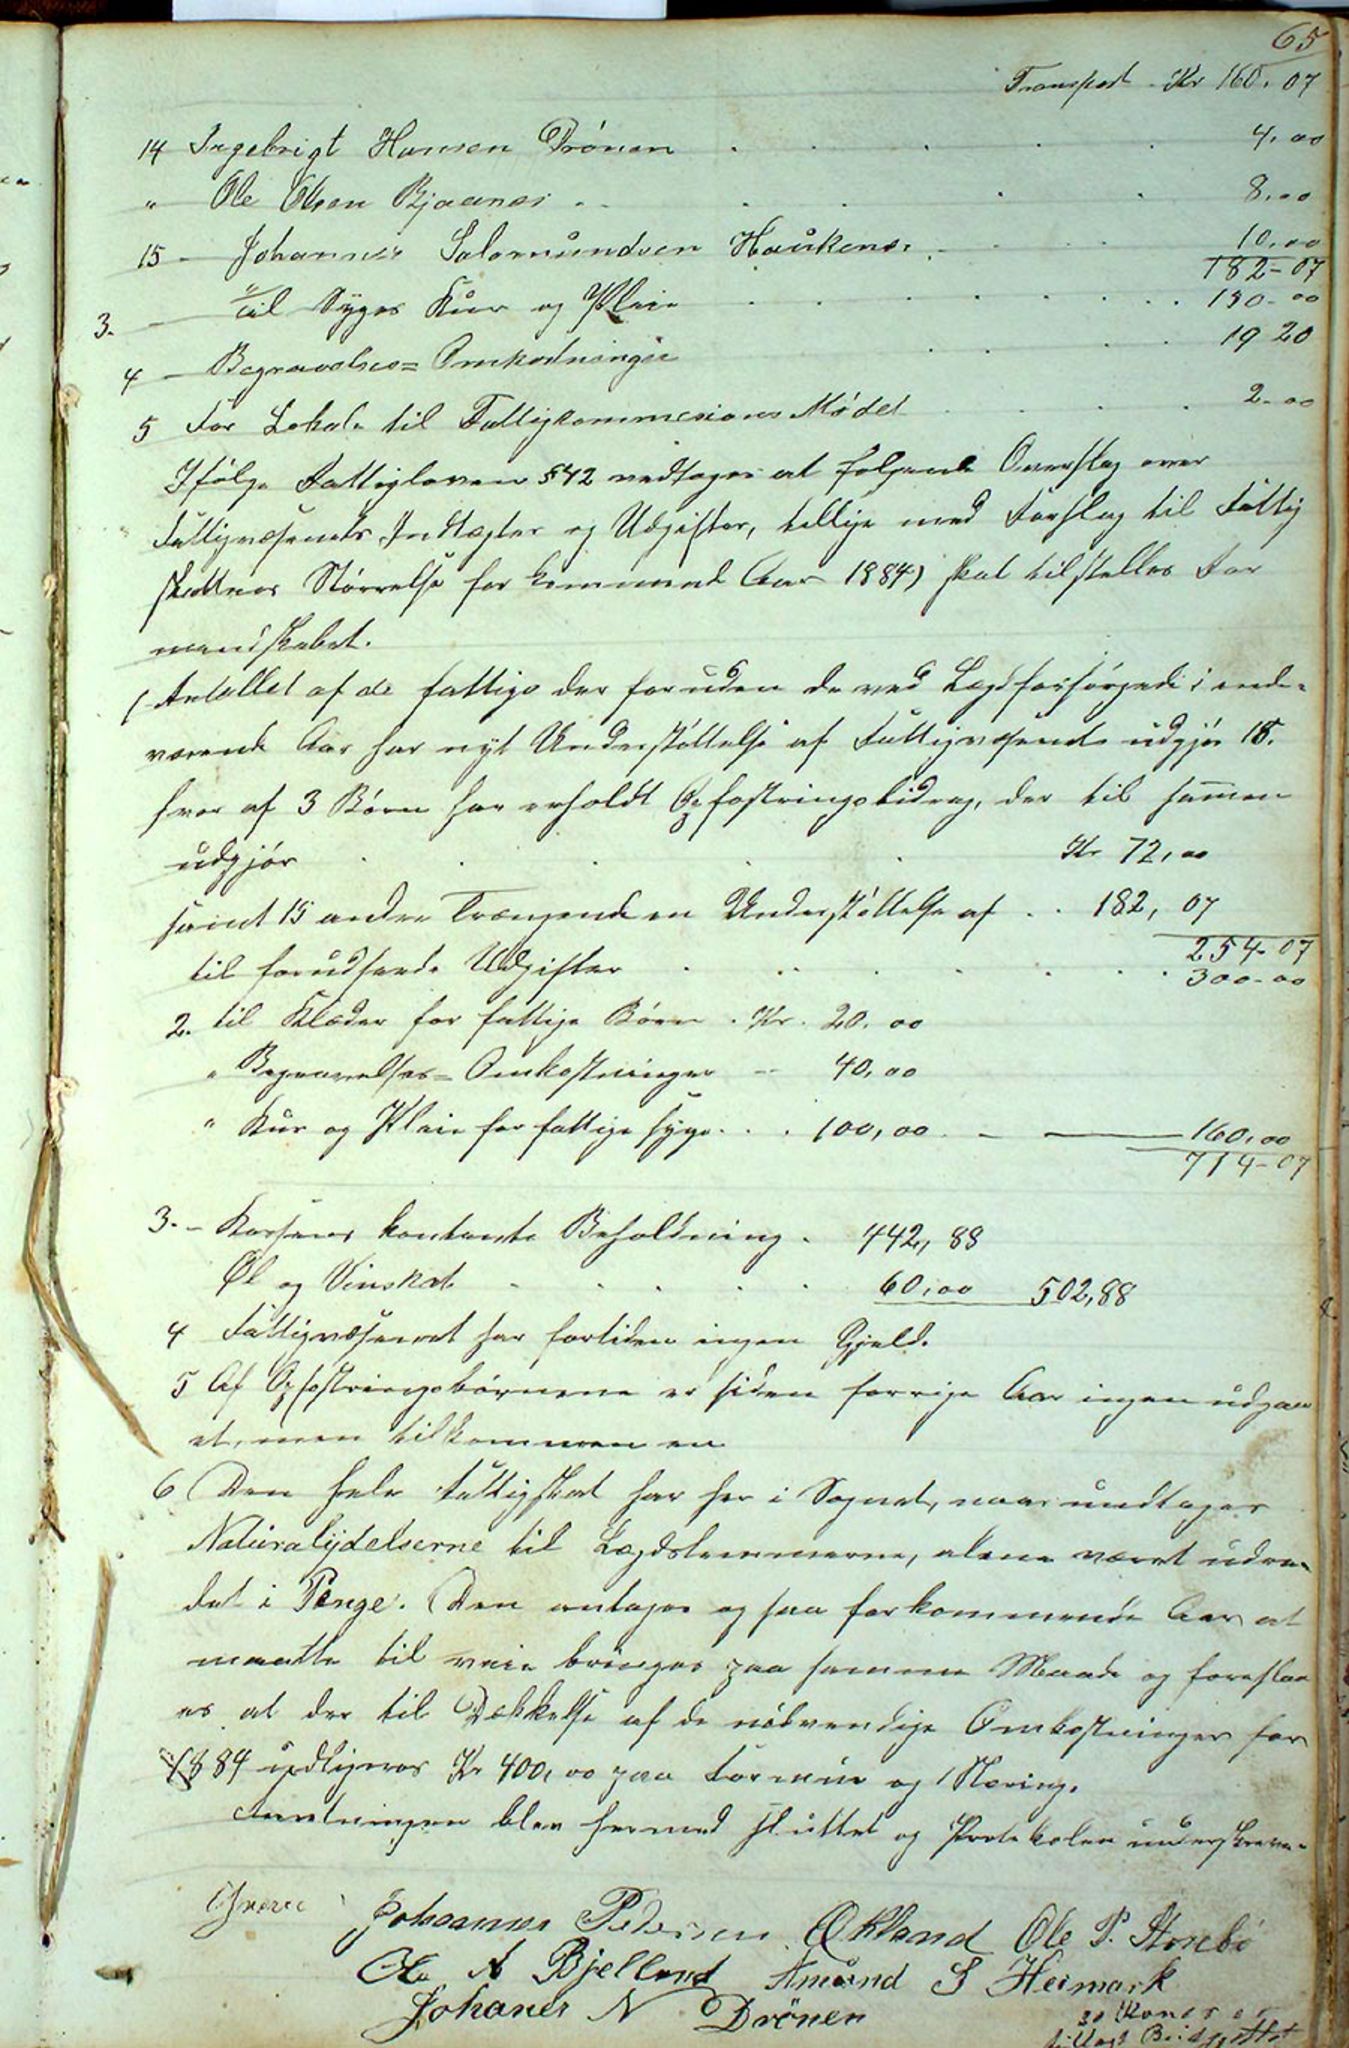 65
Transport Kr 160.07
14 Ingebrigt Hansen Drönen 4.00
" Ole Olsen Bjaanes 8.00
15 - Johannes Salamundsen Haukenes 10.00
182-07
3. - Til Syges Kur og Pleie 150-00
4 - Begravelses= Omkostninger 19 20
5 For Lokale til Fattigkommisions Mödet 2-00
Ifölge Fattigloven §42 vedtages at fölgende Overslag over
Fattigvæsenets Indtægter og Udgifter, tillige med Forslag til Fattig
skattens Störrelse for kommende Aar 1884) skal tilstilles For
mandskabet.
1 Antallet af de fattige der foruden de ved Lægd forsörgede i inde-
værende Aar har nyt Understöttelse af Fattigvæsenet udgjör 18.
hvor af 3 Börn har erholdt Opfostringsbidrag, der til sammen
udgjör Kr 72,00
samt 15 andre Trængende en Understöttelse af 182, 07
254-07
til forudseede Udgifter 300-00
2. til Klæder for fattige Börn Kr. 20.00
" Begravelses= Omkostninger - 40,00
" Kur og Pleie for fattige syge 100,00 160,00
714-07
3. - Kassens kontante Beholdning 442,88
Öl og Vinskat 60,00 502,88
4 Fattigvæsenet har fortiden ingen Gjeld.
5 Af Opfostringsbörnene er siden forrige Aar ingen udgaa
et, men tilkommen en
6 Den hele Fattigskat har her i Sognet, naar undtages
Naturalydelserne til Lægdslemmerne, alene været udre-
det i Penge. Den antages og saa for kommende Aar at
maatte til veie bringes paa samme Maade og foreslaa
es at der til Dækkelse af de nödvendige Omkostninger for
1884 udlignes Kr 400,00 paa Formue og Næring.
Forretningen blev hermed sluttet og Protokolen underskreven
Johannes Pedersen Økland Ole P. Storebö
Ole A Bjelland Amund S Heimark
Johanes N Drönen